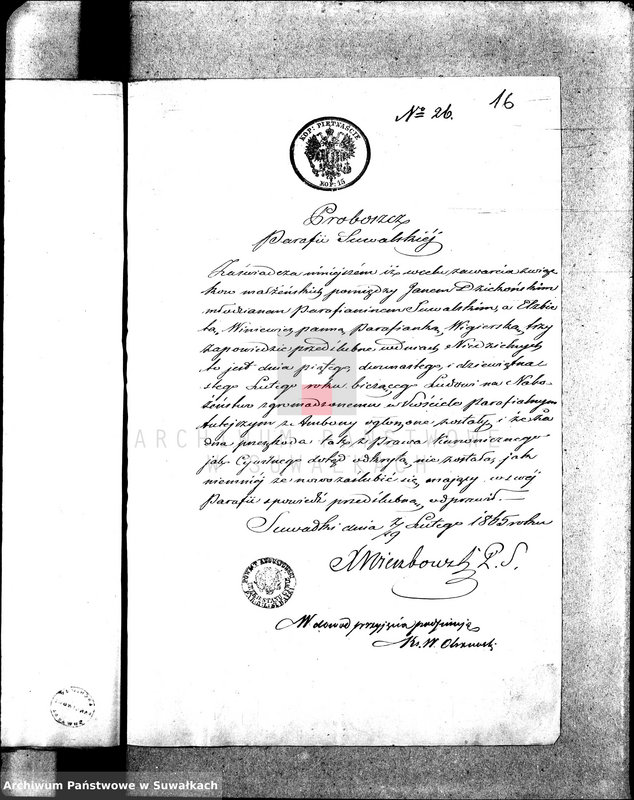 16
№ 26.
KOP: PIĘTNAŚCIE
KOP: 15
Proboszcz
Parafii Suwalskiéj
Zaświadcza niniejszém iż wcelu zawarcia związ
kow małżeńskich pomiędzy Janem Dzichońskim
młodzianem Parafianinem Suwalskim, a Elżbie
tą Winiewicz panną Parafianką Wigierską, trzy
zapowiedzie przedślubne, wdniach Niedzielnych
to jest dnia piątego, dwunastego, i dziewiętna
stego Lutego roku bieżącego Ludowi na Nabo
żeństwo zgromadzonemu w Kościele Parafialnym
tutejszym z Ambony ogłoszone zostały, i że ża
dna przeszkoda tak z Prawa Kanonicznego
jak Cywilnego dotąd odkrytą nie została, jak
niemniéj że nowozaślubić się mający wswéj
Parafii spowiedź przedślubną odprawił.
Suwałki dnia 7/19 Lutego 1865 roku
X Wierzbowski P. S.
W dowód przyjęcia podpisuję
Ks. W.
ARCHIWUM PAŃSTWOWE
W SUWAŁKACH
Archiwum Państwowe w Suwałkach